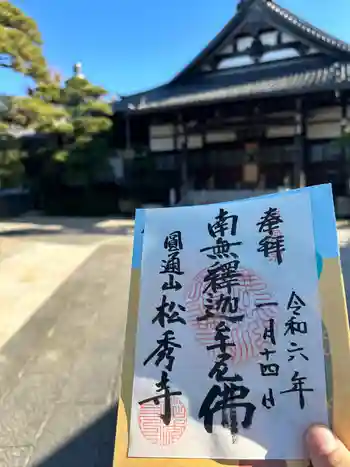 奉拝
令和六年
一月十四日
南無釋迦牟尼佛
圓通山
松秀寺